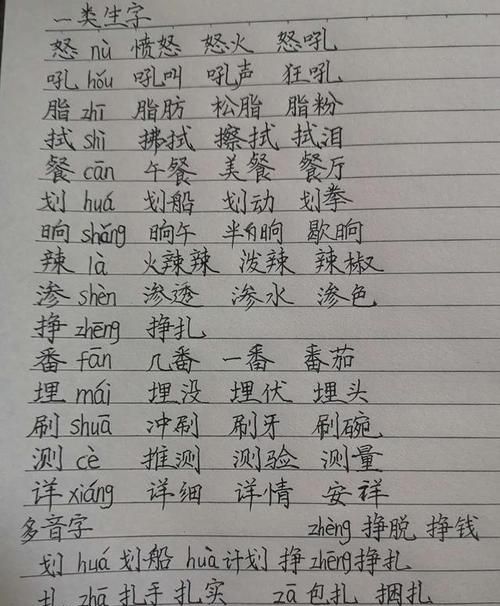 一类生字
怒 nù 愤怒 怒火 怒吼
吼 hǒu 吼叫 吼声 狂吼
脂 zhī 脂肪 松脂 脂粉
拭 shì 拂拭 擦拭 拭泪
餐 cān 午餐 美餐 餐厅
划 huá 划船 划动 划拳
晌 shǎng 晌午 半晌 歇晌
辣 là 火辣辣 泼辣 辣椒
渗 shèn 渗透 渗水 渗色
挣 zhēng 挣扎
番 fān 几番 一番 番茄
埋 mái 埋没 埋伏 埋头
刷 shuā 冲刷 刷牙 刷碗
测 cè 推测 测验 测量
详 xiáng 详细 详情 安祥
多音字 zhèng 挣脱 挣钱
划 huá 划船 huà 计划 挣 zhēng 挣扎
扎 zhā 扎手 扎实 zā 包扎 捆扎